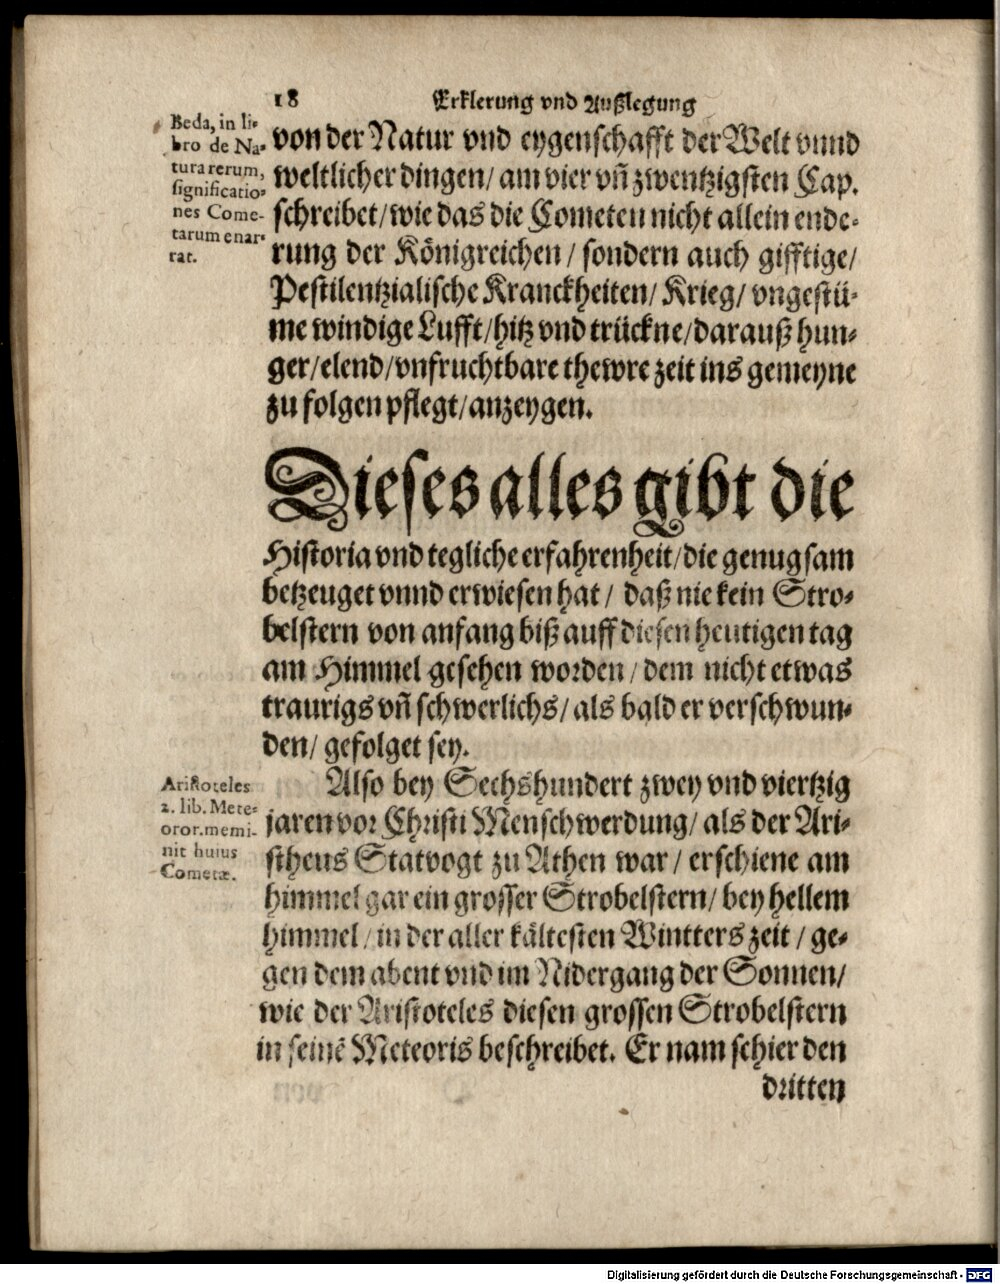 18 Erklerung vnd Außlegung
Beda, in li-
bro de Na-
tura rerum,
significatio-
nes Come-
tarum enar-
rat.
von der Natur vnd eygenschafft der Welt vnnd
weltlicher dingen/ am vier vn̄ zwentzigsten Cap.
schreibet/ wie das die Cometen nicht allein ende-
rung der Königreichen/ sondern auch gifftige/
Pestilentzialische Kranckheiten/ Krieg/ vngestü-
me windige Lufft/ hitz vnd trückne/ darauß hun-
ger/ elend/ vnfruchtbare thewre zeit ins gemeyne
zu folgen pflegt/ anzeygen.
Dieses alles gibt die
Historia vnd tegliche erfahrenheit/ die genugsam
betzeuget vnnd erwiesen hat/ daß nie kein Stro-
belstern von anfang biß auff diesen heutigen tag
am Himmel gesehen worden/ dem nicht etwas
traurigs vn̄ schwerlichs/ als bald er verschwun-
den/ gefolget sey.
Aristoteles
2. lib. Mete-
oror. memi-
nit huius
Cometæ.
Also bey Sechshundert zwey vnd viertzig
jaren vor Christi Menschwerdung/ als der Ari-
stheus Statvogt zu Athen war/ erschiene am
himmel gar ein grosser Strobelstern/ bey hellem
himmel/ in der aller kältesten Wintters zeit/ ge-
gen dem abent vnd im Nidergang der Sonnen/
wie der Aristoteles diesen grossen Strobelstern
in seinē Meteoris beschreibet. Er nam schier den
dritten
Digitalisierung gefördert durch die Deutsche Forschungsgemeinschaft - DFG